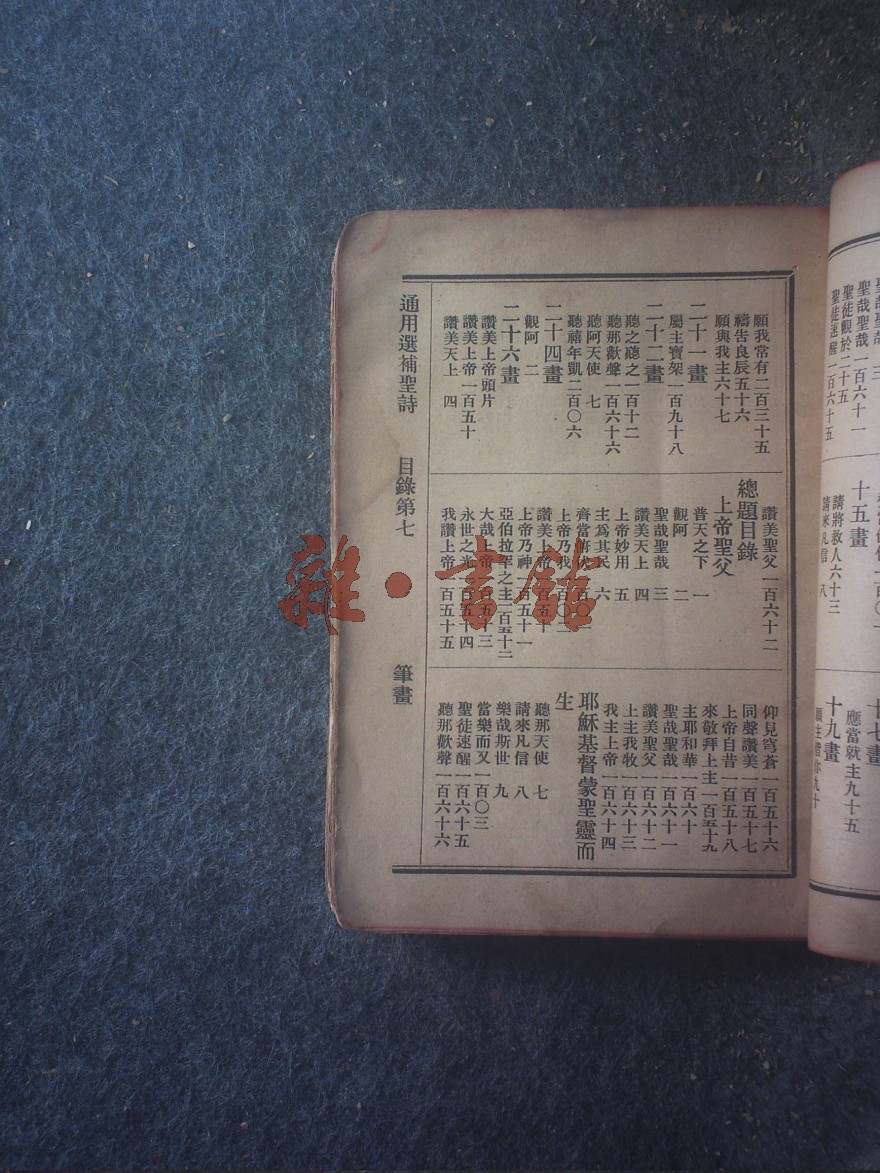 聖哉聖哉一百六十一
聖徒速醒一百六十五
十五畫
請將救人六十三
請來凡信 八
十七畫
應當就主九十五
十九畫
願我常有二百三十五
禱告良辰五十六
願與我主六十七
二十一畫
屬主寶架一百九十八
二十二畫
聽之聽之一百十二
聽那歡聲一百六十六
聽阿天使 七
聽禧年凱二百〇六
二十四畫
觀阿 二
二十六畫
讚美上帝頭片
讚美上帝一百五十
讚美天上 四
讚美聖父一百六十二
總題目錄
上帝聖父
普天之下 一
觀阿 二
聖哉聖哉 三
讚美天上 四
上帝妙用 五
主爲其民 六
齊當
上帝乃我
讚美上帝一百五十
上帝乃神一百五十一
亞伯拉罕之主一百五十二
大哉上帝一百五十三
永世之光一百五十四
我讚上帝一百五十五
仰見穹蒼一百五十六
同聲讚美一百五十七
上帝自昔一百五十八
來敬拜上主一百五十九
主耶和華一百六十
聖哉聖哉一百六十一
讚美聖父一百六十二
上主我牧一百六十三
我主上帝一百六十四
耶穌基督蒙聖靈而
生
聽那天使 七
請來凡信 八
樂哉斯世 九
當樂而又一百〇三
聖徒速醒一百六十五
聽那歡聲一百六十六
通用選補聖詩 目錄第七 筆畫
雜·書館